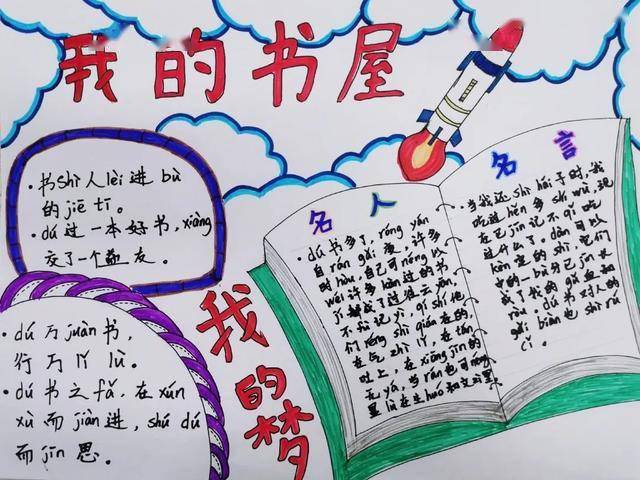 我的书屋
·书shì人lèi进bù
的jiē tī。
·dú过一本好书,xiàng
交了一个益友。
·dú万juàn书,
行万lǐ lù。
·dú书之fǎ,在xún
xù而jiàn进,shú dú
而jīn思。
我的梦
名人
·dú书多了,róng yán
自rán gǎi变,许多
时hòu,自己可néng以
wéi许多kàn过的书
jí都成了过yān云yān,
不fù记yì,qí shí他
们réng shì qián在的,
在气zhì lǐ,在tán
吐上,在xiōng jīn的
无yá,当rán也可néng
显lù在生huó和
名言
·当我还shì hái子时,我
吃过hěn多shí wù,现
在已jīn记不qǐ吃
过什么了。dàn可以
kěn定的shì,它们
中的一bù分已jīn长
成了我的gǔ血和
ròu。dú书对人的
gǎi biàn也shì rú
cǐ。